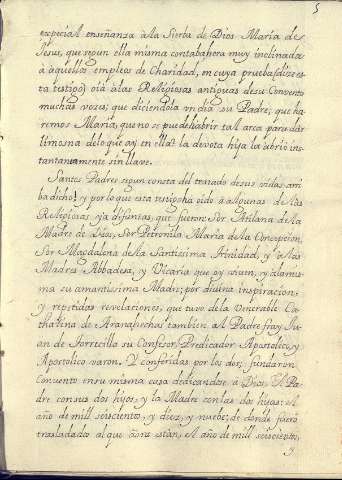 5
especial enseñanza a la Sierba de Dios Maria de
Jesus, que segun ella misma contaba, era muy inclinada
a aquellos empleos de Charidad, en cuya prueba (dize es
ta testigo) oia a las Religiosas antiguas de su Convento
muchas vozes; que diciendola un dia su Padre; que ha
remos Maria, que no se puede habrir tal arca para dar
limosna de lo que ay en ella? la devota hija la abrió ins-
tantaneamente sin llave.
Santos Padres segun consta del tratado de sus vidas arri
ba dicho; y por lo que esta testigo ha oido a algunas de las
Religiosas ya difuntas, que fueron: Sor Atilana de la
Madre de Dios, Sor Petronilla Maria de la Concepcion,
Sor Magdalena de la Santissima Trinidad, y a las
Madres Abbadesa, y Vicaria que oy viven, y a la mis
ma su amantissima Madre; por divina inspiracion,
y repetidas revelaciones, que tuvo de la Venerable Ca
thalina de Arana, hechas tambien al Padre fray Ju
an de Torrecilla su Confesor, Predicador Apostolico, y
Apostolico varon. Y conferidas por los dos; fundaron
Convento en su misma casa dedicandose a Dios, el Pa
dre con sus dos hijos, y la Madre con las dos hijas: el
año de mill seiscientos, y diez, y nuebe; de donde fueron
trasladadas al que aora estan, el año de mill seiscientos,
y